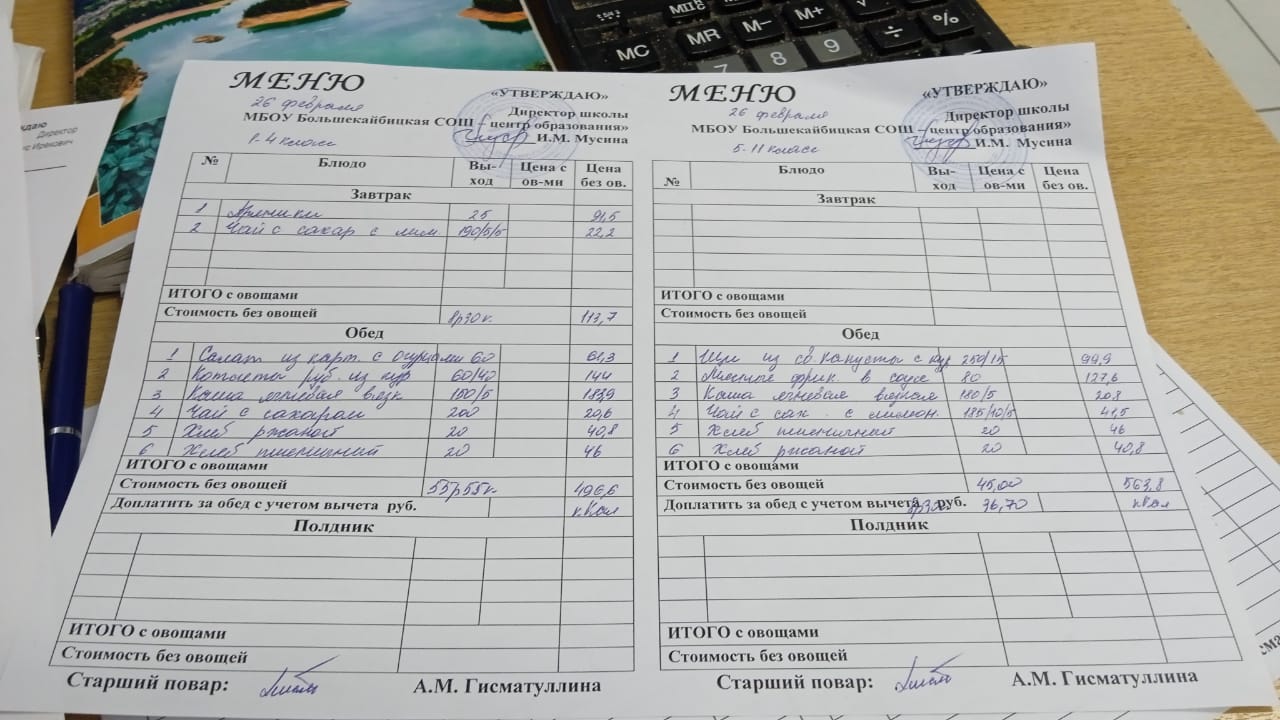 МС
MR
M−
M+
÷
%
7
8
9
Директор
МЕНЮ
«УТВЕРЖДАЮ»
26 февраля
Директор школы
МБОУ Большекайбицкая СОШ – центр образования»
И.М. Мусина
1-4 класс
№ Блюдо Вы-ход Цена с ов-ми Цена без ов.
Завтрак
1 Пряники 25 91,5
2 Чай с сахар с лим. 190/5/5 22,2
ИТОГО с овощами
Стоимость без овощей 8р30к. 113,7
Обед
1 Салат из карт. с огурцами 60 61,3
2 Котлеты руб. из кур 60/40 144
3 Каша ячневая вязк 150/5 183,9
4 Чай с сахаром 200 20,6
5 Хлеб ржаной 20 40,8
6 Хлеб пшеничный 20 46
ИТОГО с овощами
Стоимость без овощей 55р55к. 496,6
Доплатить за обед с учетом вычета руб. ккал
Полдник
ИТОГО с овощами
Стоимость без овощей
Старший повар: А.М. Гисматуллина
МЕНЮ
«УТВЕРЖДАЮ»
26 февраля
Директор школы
МБОУ Большекайбицкая СОШ – центр образования»
И.М. Мусина
5-11 класс
№ Блюдо Вы-ход Цена с ов-ми Цена без ов.
Завтрак
ИТОГО с овощами
Стоимость без овощей
Обед
1 Щи из св. капусты с кур 250/15 99,9
2 Мясные фрик. в соусе 80 127,6
3 Каша ячневая вязкая 180/5 20,8
4 Чай с сах. с лимон. 185/10/5 41,5
5 Хлеб пшеничный 20 46
6 Хлеб ржаной 20 40,8
ИТОГО с овощами
Стоимость без овощей 45,00 563,8
Доплатить за обед с учетом вычета 8р30к. руб. 36,70 ккал
Полдник
ИТОГО с овощами
Стоимость без овощей
Старший повар: А.М. Гисматуллина